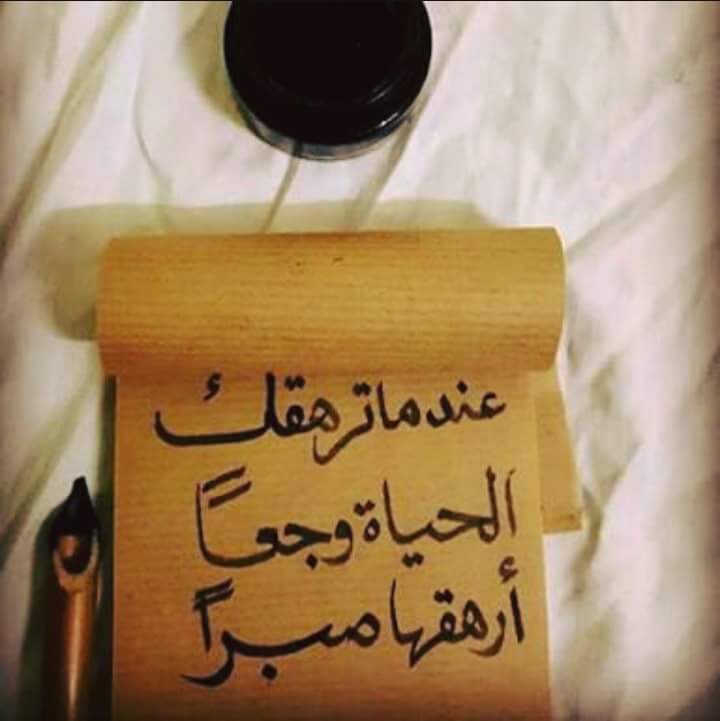 عندما ترهقك
الحياة وجعاً
أرهقها صبراً